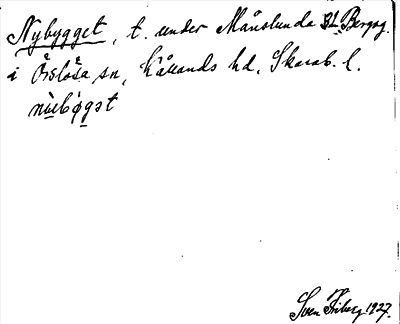 Nybygget, t. under Månslunda Bergag.
i Örslösa sn, Kållands hd, Skarab. l.
nùbø̀gst
Sven 1927.